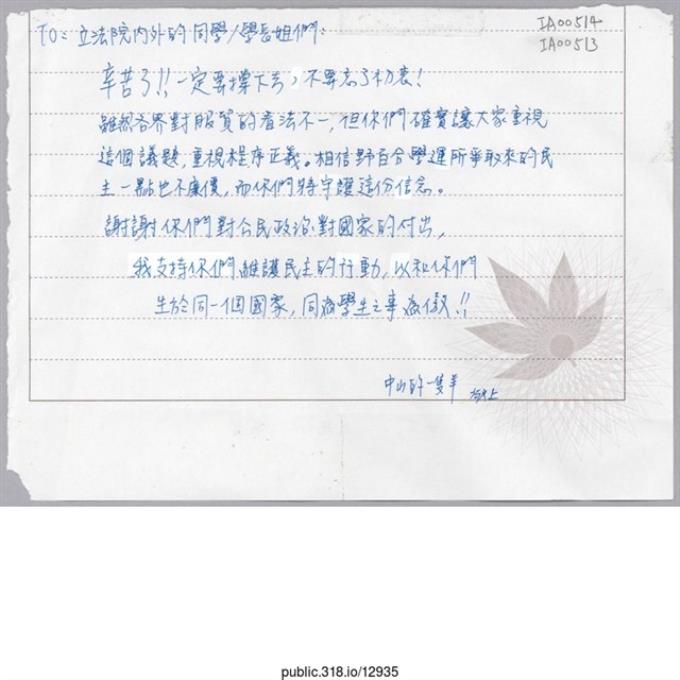 TO: 立法院內外的同學/學長姐們:
IA00514
IA00513
辛苦了!! 一定要撐下去,不要忘了初衷!
雖然各界對服貿的看法不一,但你們確實讓大家重視
這個議題,重視程序正義。相信野百合學運所爭取來的民
主一點也不廉價,而你們將守護這份信念。
謝謝你們對公民政治、對國家的付出,
我支持你們維護民主的行動,以和你們
生於同一個國家,同為學生之事為傲!!
中山的一隻羊 敬上
public.318.io/12935